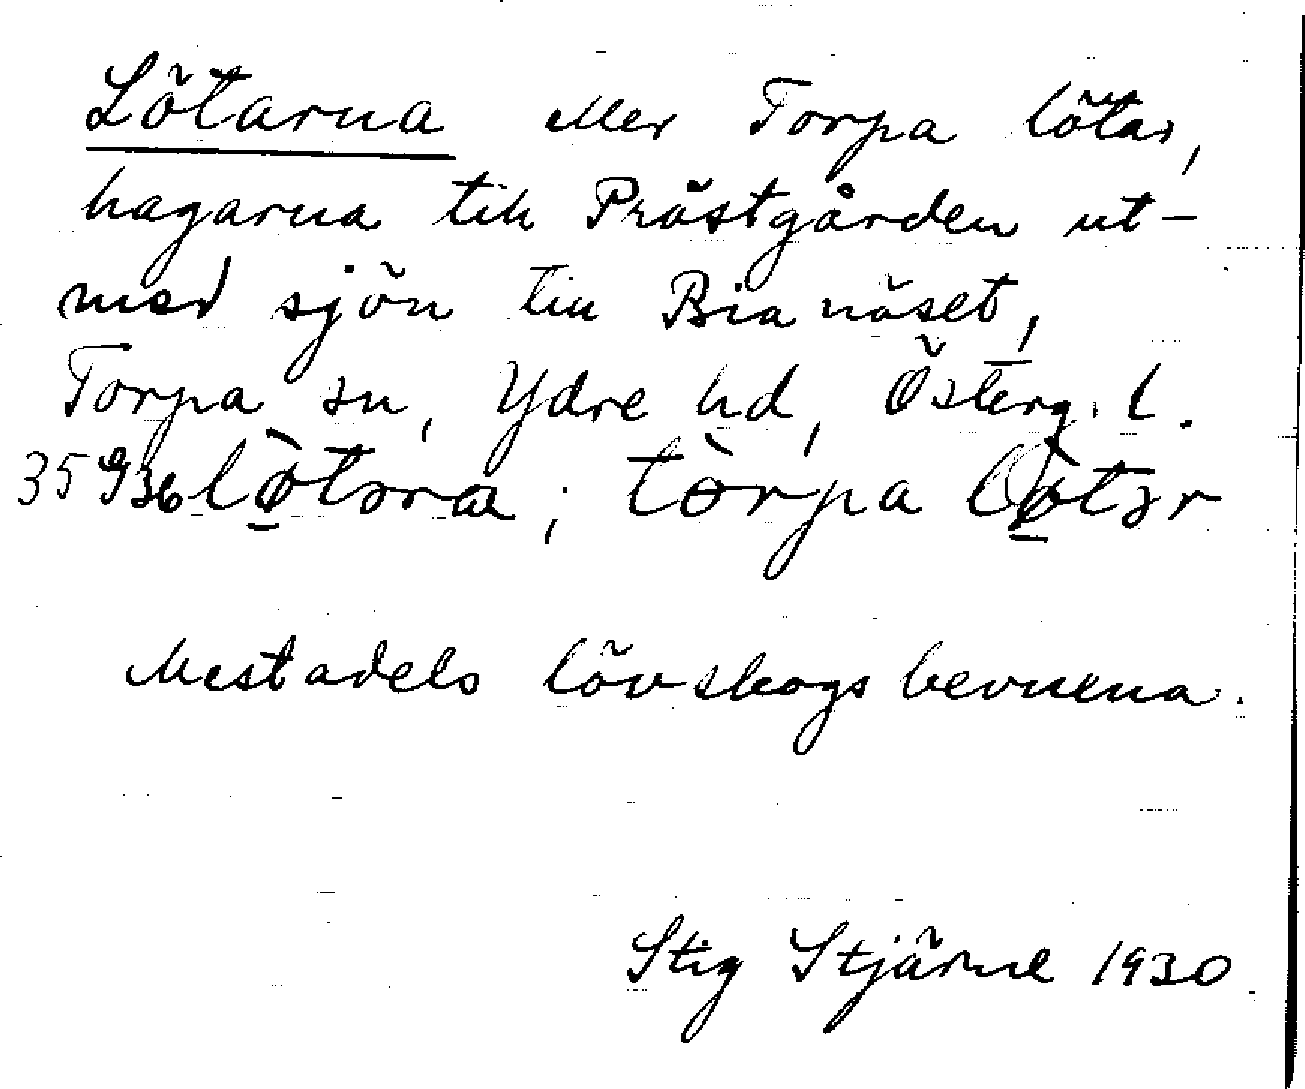 Lötarna eller Torpa lötar,
hagarna till Prästgården ut-
med sjön till Bianäset,
Torpa sn, Ydre hd, Österg. l.
35 936 lò̱təra ; tòrpa lò̱tər
Mestadels lövskogsbevuxna.
Stig Stjärne 1930